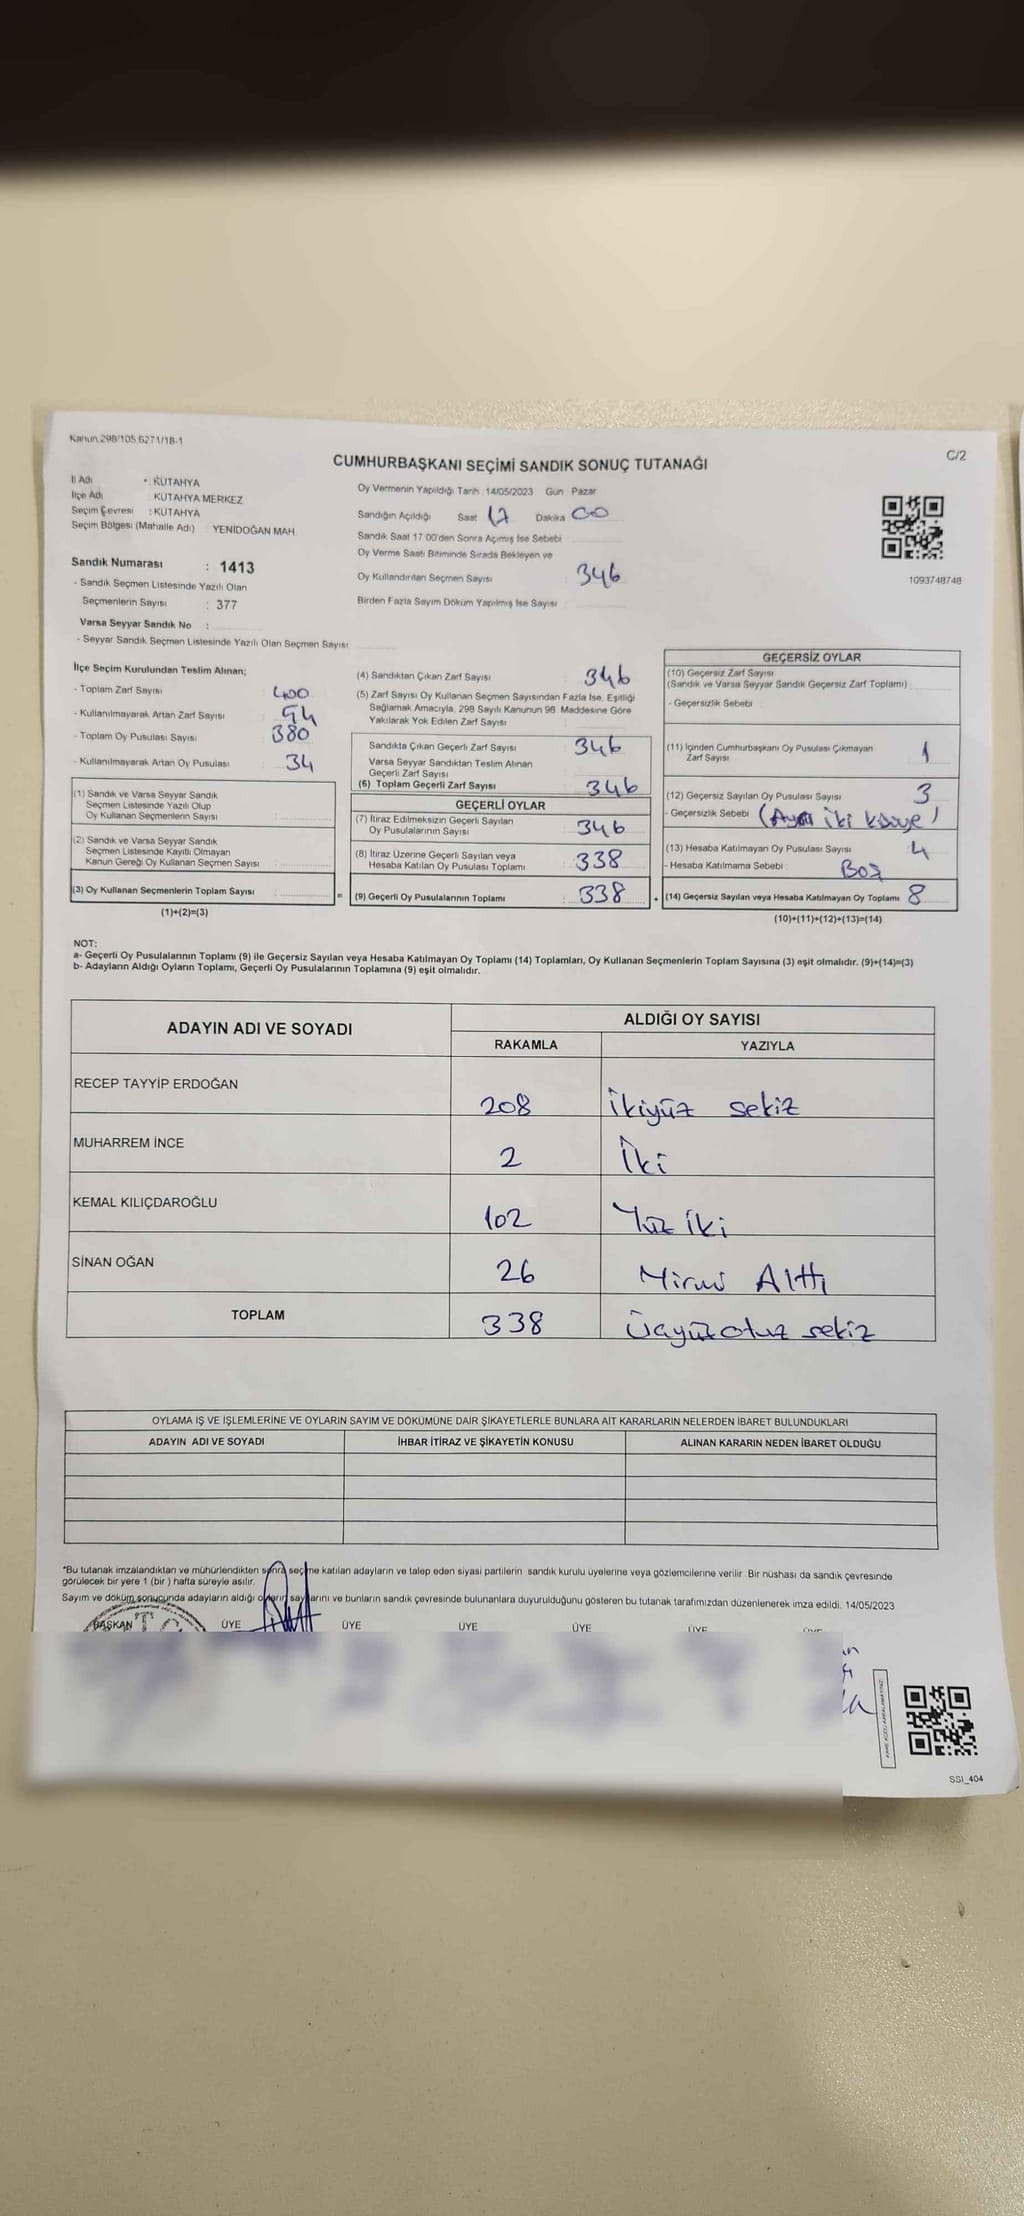 Kanun.298/105,6271/18-1
C/2
CUMHURBAŞKANI SEÇİMİ SANDIK SONUÇ TUTANAĞI
İl Adı : KÜTAHYA
İlçe Adı KÜTAHYA MERKEZ
Seçim Çevresi : KÜTAHYA
Seçim Bölgesi (Mahalle Adı) YENİDOĞAN MAH
Sandık Numarası : 1413
- Sandık Seçmen Listesinde Yazılı Olan
Seçmenlerin Sayısı : 377
Varsa Seyyar Sandık No :
- Seyyar Sandık Seçmen Listesinde Yazılı Olan Seçmen Sayısı
Oy Vermenin Yapıldığı Tarih : 14/05/2023 Gün Pazar
Sandığın Açıldığı Saat 17 Dakika 00
Sandık Saat 17.00'den Sonra Açılmış İse Sebebi
Oy Verme Saati Bitiminde Sırada Bekleyen ve
Oy Kullandırılan Seçmen Sayısı : 346
Birden Fazla Sayım Döküm Yapılmış İse Sayısı
1093748748
İlçe Seçim Kurulundan Teslim Alınan;
- Toplam Zarf Sayısı 400
- Kullanılmayarak Artan Zarf Sayısı 54
- Toplam Oy Pusulası Sayısı 380
- Kullanılmayarak Artan Oy Pusulası 34
(1) Sandık ve Varsa Seyyar Sandık
Seçmen Listesinde Yazılı Olup
Oy Kullanan Seçmenlerin Sayısı
(2) Sandık ve Varsa Seyyar Sandık
Seçmen Listesinde Kayıtlı Olmayan
Kanun Gereği Oy Kullanan Seçmen Sayısı
(3) Oy Kullanan Seçmenlerin Toplam Sayısı :
(1)+(2)=(3)
(4) Sandıktan Çıkan Zarf Sayısı 346
(5) Zarf Sayısı Oy Kullanan Seçmen Sayısından Fazla İse, Eşitliği
Sağlamak Amacıyla, 298 Sayılı Kanunun 98. Maddesine Göre
Yakılarak Yok Edilen Zarf Sayısı :
Sandıkta Çıkan Geçerli Zarf Sayısı 346
Varsa Seyyar Sandıktan Teslim Alınan
Geçerli Zarf Sayısı
(6) Toplam Geçerli Zarf Sayısı 346
GEÇERLİ OYLAR
(7) İtiraz Edilmeksizin Geçerli Sayılan
Oy Pusulalarının Sayısı 346
(8) İtiraz Üzerine Geçerli Sayılan veya
Hesaba Katılan Oy Pusulaları Toplamı 338
= (9) Geçerli Oy Pusulalarının Toplamı : 338 +
GEÇERSİZ OYLAR
(10) Geçersiz Zarf Sayısı
(Sandık ve Varsa Seyyar Sandık Geçersiz Zarf Toplamı)
- Geçersizlik Sebebi
(11) İçinden Cumhurbaşkanı Oy Pusulası Çıkmayan
Zarf Sayısı 1
(12) Geçersiz Sayılan Oy Pusulası Sayısı 3
- Geçersizlik Sebebi (Aynı iki kişiye)
(13) Hesaba Katılmayan Oy Pusulası Sayısı 4
- Hesaba Katılmama Sebebi Boş
(14) Geçersiz Sayılan veya Hesaba Katılmayan Oy Toplamı 8
(10)+(11)+(12)+(13)=(14)
NOT:
a- Geçerli Oy Pusulalarının Toplamı (9) ile Geçersiz Sayılan veya Hesaba Katılmayan Oy Toplamı (14) Toplamları, Oy Kullanan Seçmenlerin Toplam Sayısına (3) eşit olmalıdır. (9)+(14)=(3)
b- Adayların Aldığı Oyların Toplamı, Geçerli Oy Pusulalarının Toplamına (9) eşit olmalıdır.
ADAYIN ADI VE SOYADI ALDIĞI OY SAYISI
RAKAMLA YAZIYLA
RECEP TAYYİP ERDOĞAN 208 İkiyüz sekiz
MUHARREM İNCE 2 İki
KEMAL KILIÇDAROĞLU 102 Yüz iki
SİNAN OĞAN 26 Yirmi Altı
TOPLAM 338 Üçyüzotuz sekiz
OYLAMA İŞ VE İŞLEMLERİNE VE OYLARIN SAYIM VE DÖKÜMÜNE DAİR ŞİKAYETLERLE BUNLARA AİT KARARLARIN NELERDEN İBARET BULUNDUKLARI
ADAYIN ADI VE SOYADI İHBAR İTİRAZ VE ŞİKAYETİN KONUSU ALINAN KARARIN NEDEN İBARET OLDUĞU
*Bu tutanak imzalandıktan ve mühürlendikten sonra seçime katılan adayların ve talep eden siyasi partilerin sandık kurulu üyelerine veya gözlemcilerine verilir. Bir nüshası da sandık çevresinde
görülecek bir yere 1 (bir ) hafta süreyle asılır.
Sayım ve döküm sonucunda adayların aldığı oyların sayılarını ve bunların sandık çevresinde bulunanlara duyurulduğunu gösteren bu tutanak tarafımızdan düzenlenerek imza edildi. 14/05/2023
BAŞKAN ÜYE ÜYE ÜYE ÜYE ÜYE
SSI_404